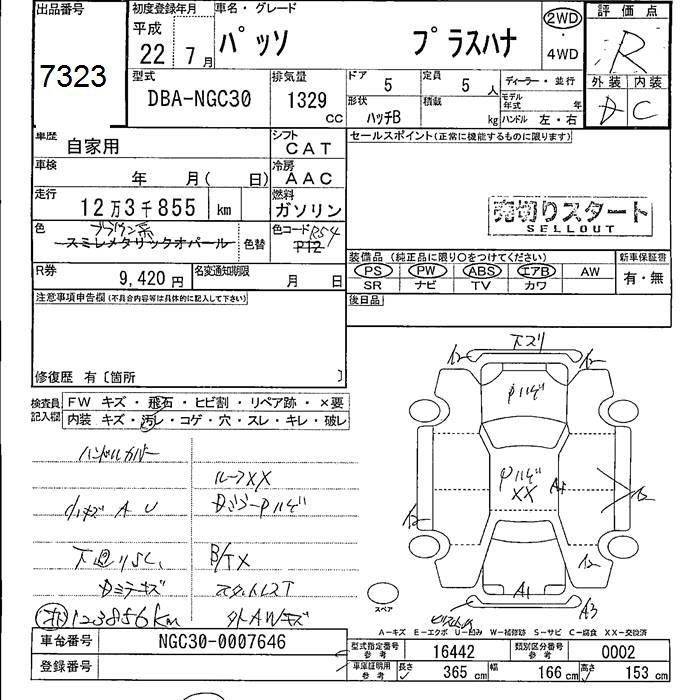 出品番号
7323
初度登録年月
平成
22年 7月
車名・グレード
パッソ プラスハナ
2WD
・
4WD
評価点
R
外装 内装
D C
型式
DBA-NGC30
排気量
1329 CC
ドア 5
定員 5 人
ディーラー・並行
形状 ハッチB
積載 kg
モデル年式 年
ハンドル 左・右
車歴 自家用
シフト CAT
セールスポイント(正常に機能するものに限ります)
車検 年 月( 日)
冷房 AAC
走行 12万3千855 km
燃料 ガソリン
売切りスタート
SELLOUT
色 ブラウン系
スミレメタリックオパール
色替
色コード R54
P12
装備品 (純正品に限り○をつけてください)
新車保証書
PS PW ABS エアB AW
SR ナビ TV カワ
有・無
R券 9,420 円
名変通知期限 月 日
後日品
注意事項申告欄(不具合内容等は具体的に記入して下さい)
修復歴 有〔箇所 〕
検査員記入欄
FW キズ・飛石・ヒビ割・リペア跡・×要
内装 キズ・汚レ・コゲ・穴・スレ・キレ・破レ
ハンドルカバー
ルーフXX
A U
下廻りSC
B/TX
123856km
外AWキズ
下ズリ
XX
A1
A1
A3
スペア
A-キズ E-エクボ U-凹み W-補修跡 S-サビ C-腐食 XX-交換済
車台番号 NGC30-0007646
登録番号
型式指定番号 参考 16442
類別区分番号 参考 0002
車庫証明用 参考 長さ 365 cm 幅 166 cm 高さ 153 cm